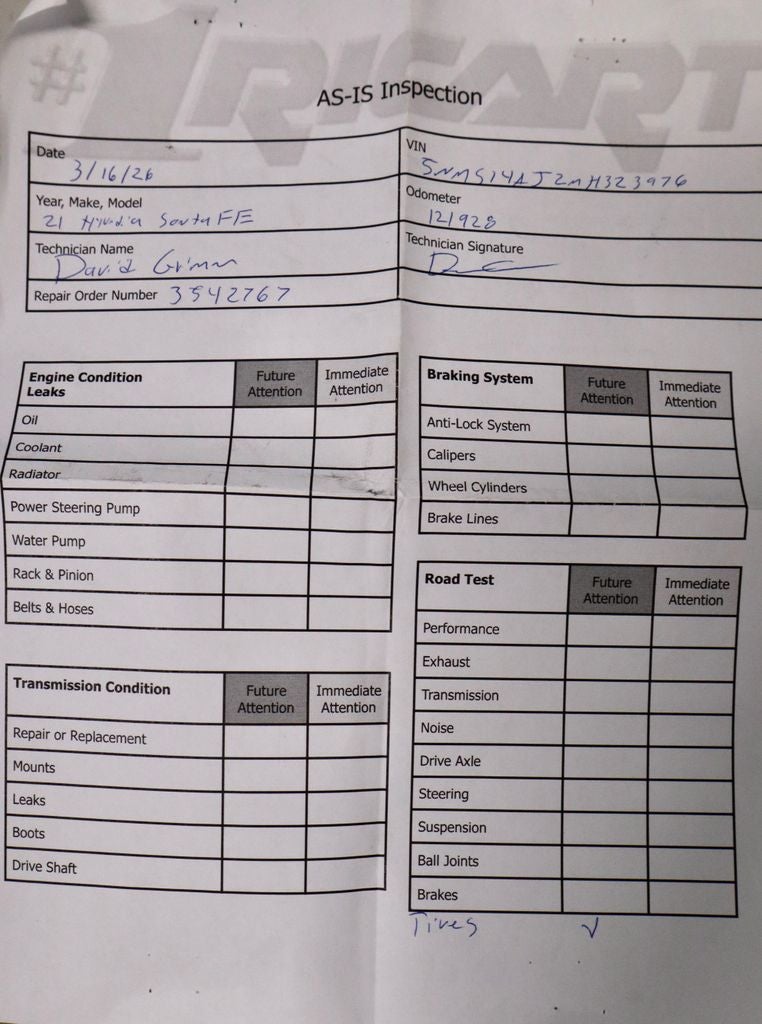 #1 RICART
AS-IS Inspection
Date
3/16/26
VIN
5NMS14AJ2MH323976
Year, Make, Model
21 Hyundia Santa FE
Odometer
121928
Technician Name
David Grimm
Technician Signature
Repair Order Number 3542767
Engine Condition
Leaks
Future
Attention
Immediate
Attention
Oil
Coolant
Radiator
Power Steering Pump
Water Pump
Rack & Pinion
Belts & Hoses
Transmission Condition
Future
Attention
Immediate
Attention
Repair or Replacement
Mounts
Leaks
Boots
Drive Shaft
Braking System
Future
Attention
Immediate
Attention
Anti-Lock System
Calipers
Wheel Cylinders
Brake Lines
Road Test
Future
Attention
Immediate
Attention
Performance
Exhaust
Transmission
Noise
Drive Axle
Steering
Suspension
Ball Joints
Brakes
Tires ✓